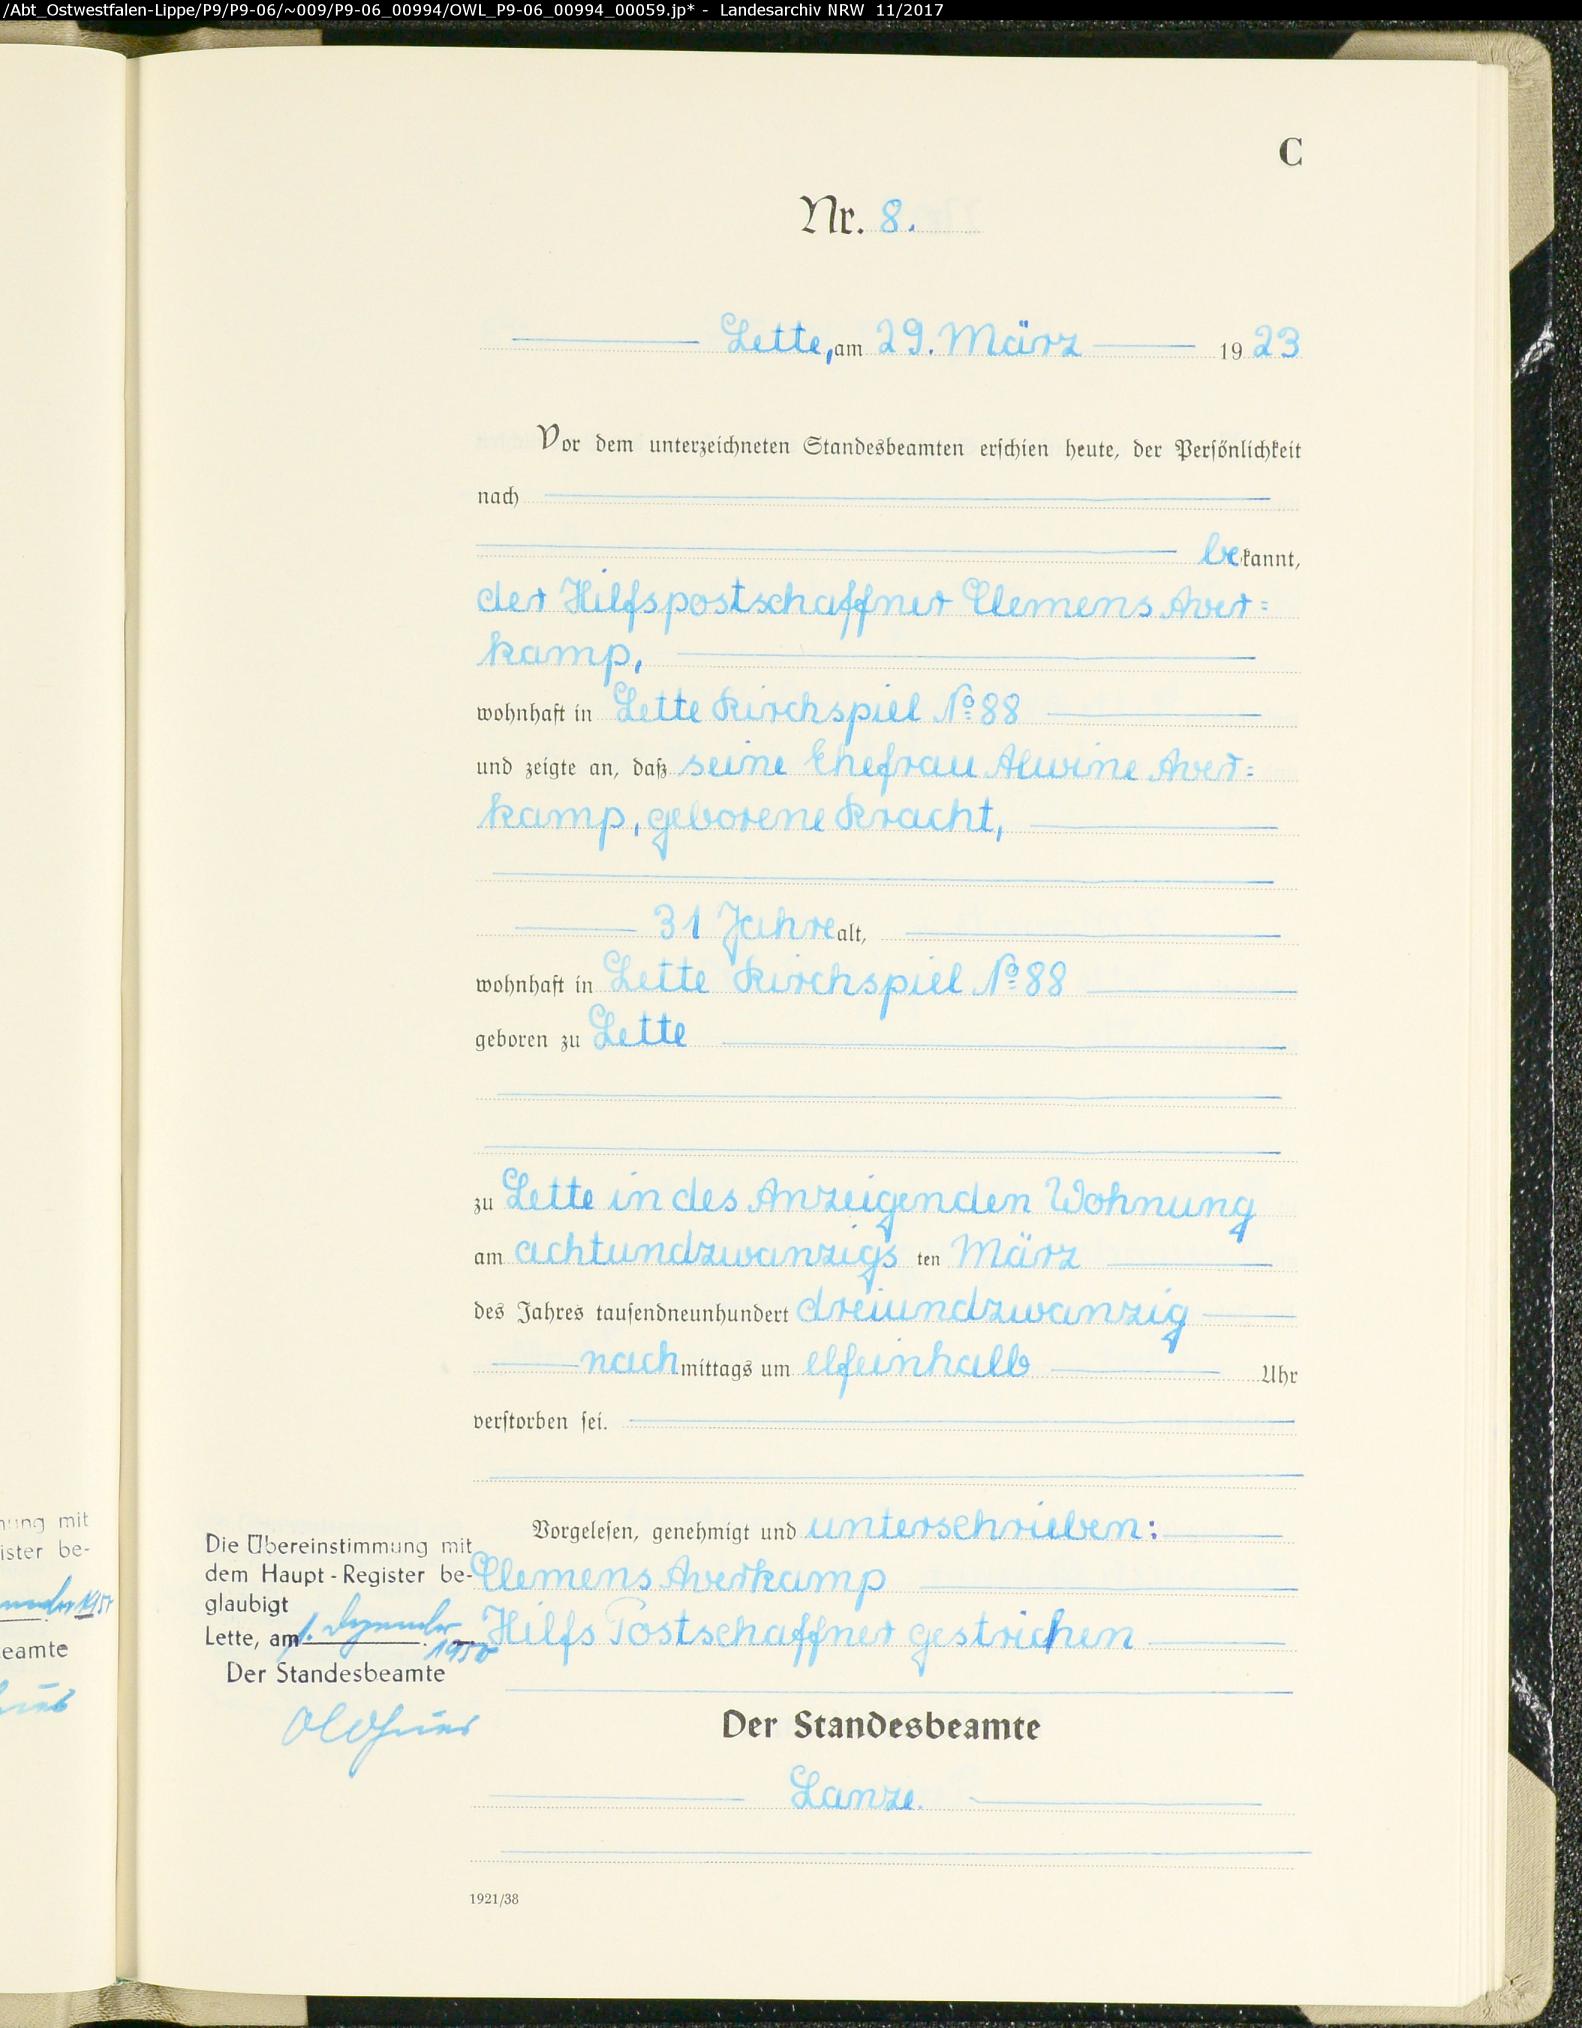 /Abt_Ostwestfalen-Lippe/P9/P9-06/~009/P9-06_00994/OWL_P9-06_00994_00059.jp* - Landesarchiv NRW 11/2017
C
Nr. 8.
Lette, am 29. März 1923
Vor dem unterzeichneten Standesbeamten erschien heute, der Persönlichkeit
nach
bekannt,
der Hilfspostschaffner Clemens Aver=
kamp,
wohnhaft in Lette Kirchspiel No 88
und zeigte an, daß seine Ehefrau Alwine Aver=
kamp, geborene Kracht,
31 Jahre alt,
wohnhaft in Lette Kirchspiel No 88
geboren zu Lette
zu Lette in des Anzeigenden Wohnung
am achtundzwanzigs ten März
des Jahres tausendneunhundert dreiundzwanzig
nachmittags um elfeinhalb Uhr
verstorben sei.
Vorgelesen, genehmigt und unterschrieben:
Clemens Averkamp
Hilfs Postschaffner gestrichen
Der Standesbeamte
Lanze.
1921/38
Die Übereinstimmung mit
dem Haupt-Register be-
glaubigt
Lette, am 1. Dezember
1950
Der Standesbeamte
nung mit
ister be-
eamte